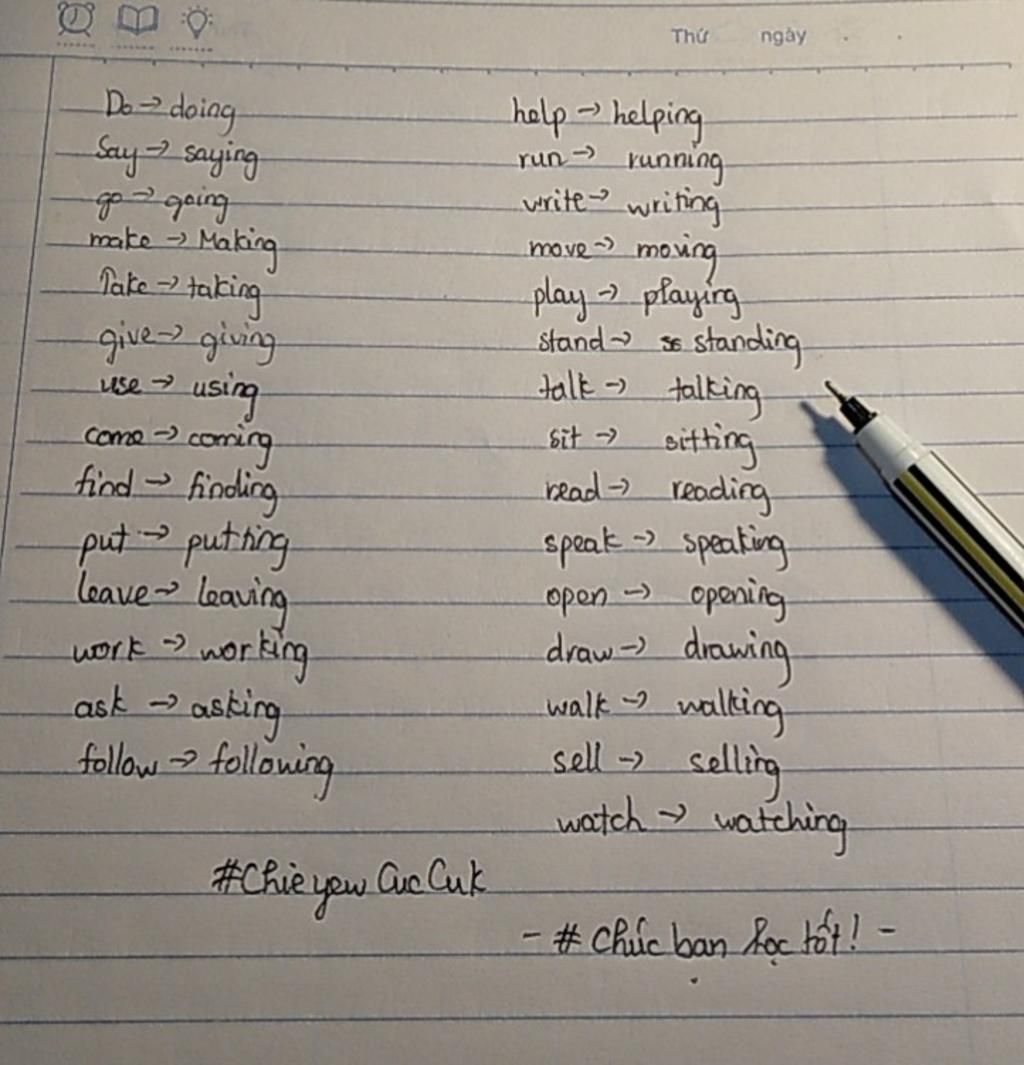 Thứ ngày
Do → doing
Say → saying
go → going
make → Making
Take → taking
give → giving
use → using
come → coming
find → finding
put → putting
leave → leaving
work → working
ask → asking
follow → following
help → helping
run → running
write → writing
move → moving
play → playing
stand → standing
talk → talking
sit → sitting
read → reading
speak → speaking
open → opening
draw → drawing
walk → walking
sell → selling
watch → watching
#Chie yew Cuc Cuk
- # Chúc bạn học tốt! -